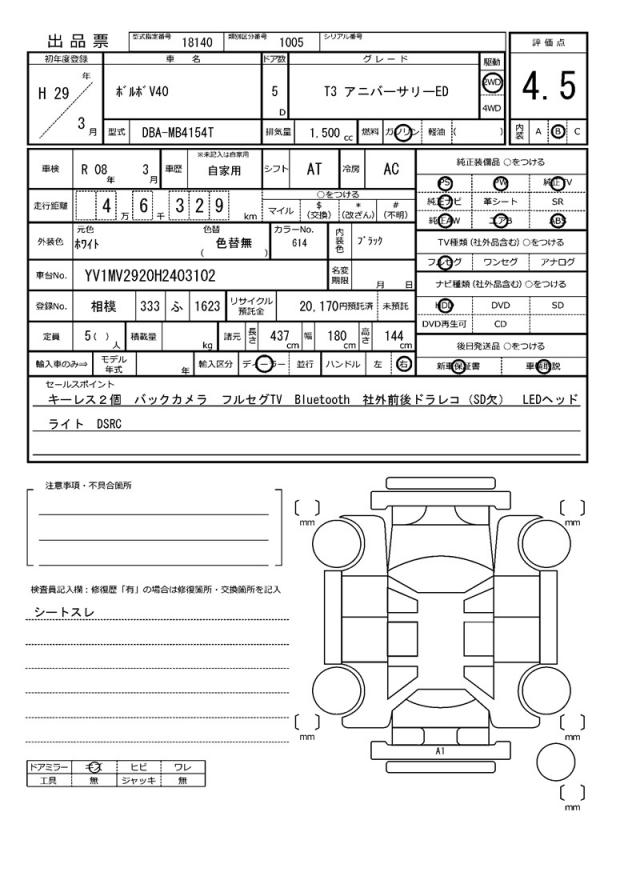 出品票 型式指定番号 18140 類別区分番号 1005 シリアル番号
評価点
4.5
内装 A B C
初年度登録 車名 ドア数 グレード 駆動
H 29 年 3 月 ﾎﾞﾙﾎﾞV40 5 D T3 アニバーサリーED 2WD 4WD
型式 DBA-MB4154T 排気量 1.500 cc 燃料 ガソリン 軽油 ( )
車検 R 08 年 3 月 車歴 ※未記入は自家用 自家用 シフト AT 冷房 AC
走行距離 4 万 6 千 3 2 9 km ○をつける
マイル $(交換) *(改ざん) #(不明)
外装色 元色 ﾎﾜｲﾄ 色替 ( 色替無 ) カラーNo. 614 内装色 ﾌﾞﾗｯｸ
車台No. YV1MV2920H2403102 名変期限 月 日
登録No. 相模 333 ふ 1623 リサイクル預託金 20,170円預託済 未預託
定員 5( )人 積載量 kg 諸元 長さ 437 cm 幅 180 cm 高さ 144 cm
輸入車のみ⇒ モデル年式 年 輸入区分 ディーラー 並行 ハンドル 左 右
純正装備品 ○をつける
PS PW 純正TV
純正ナビ 革シート SR
純正AW エアB ABS
TV種類 (社外品含む) ○をつける
フルセグ ワンセグ アナログ
ナビ種類 (社外品含む) ○をつける
HDD DVD SD
DVD再生可 CD
後日発送品 ○をつける
新車保証書 車輌取説
セールスポイント
キーレス２個 バックカメラ フルセグTV Bluetooth 社外前後ドラレコ（SD欠） LEDヘッド
ライト DSRC
注意事項・不具合箇所
検査員記入欄：修復歴「有」の場合は修復箇所・交換箇所を記入
シートスレ
ドアミラー キズ ヒビ ワレ
工具 無 ジャッキ 無
mm
mm
mm
mm
A1
mm